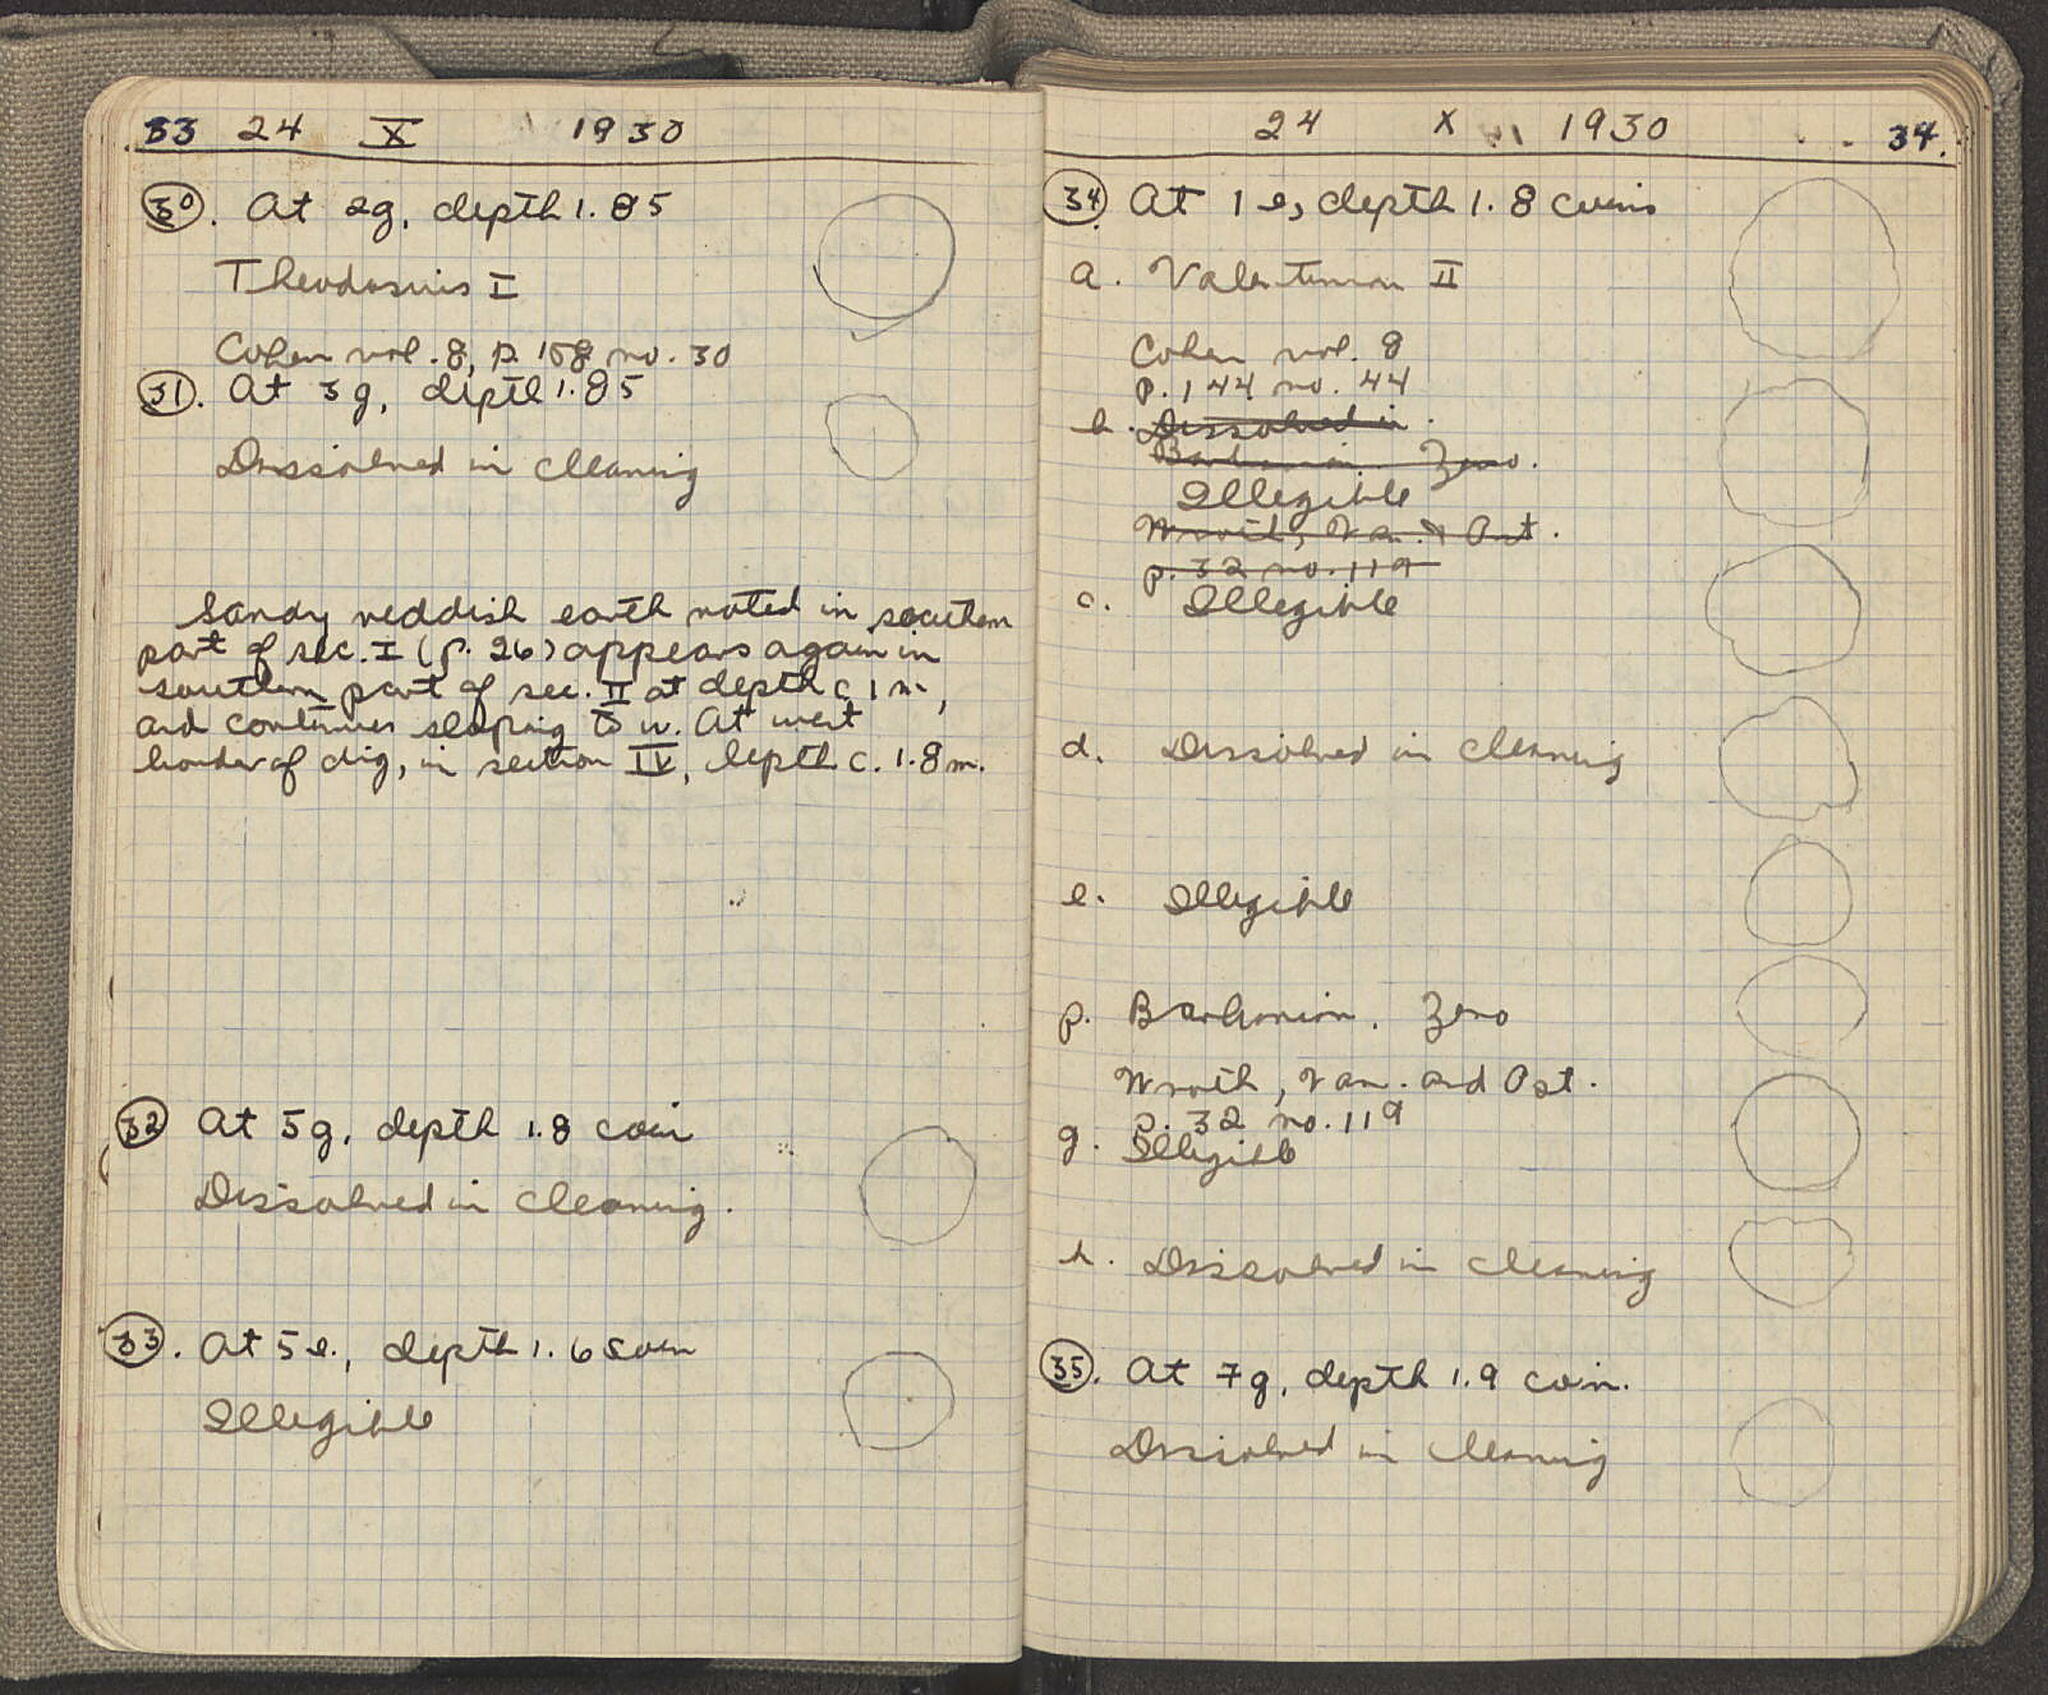 33 24 X 1930
30. At 2g, depth 1.85
Theodosius I
Cohen vol. 8, p. 158 no. 30
31. At 3g, depth 1.85
Dissolved in cleaning
Sandy reddish earth noted in southern
part of sec. I (p. 26) appears again in
southern part of sec. II at depth c 1 m,
and continues sloping to w. At west
border of dig, in section IV, depth c. 1.8 m.
32 At 5g, depth 1.8 coin
Dissolved in cleaning.
33. At 5e., depth 1.6 coin
Illegible
24 X 1930 34.
34. At 1e, depth 1.8 coins
a. Valentinian II
Cohen vol. 8
p. 144 no. 44
b. Dissolved in
Zeno.
Illegible
Wroth, Van. & Ost.
p. 32 no. 119
c. Illegible
d. Dissolved in cleaning
e. Illegible
Zeno
Wroth, Van. and Ost.
p. 32 no. 119
g. Illegible
h. Dissolved in cleaning
35. At 7g, depth 1.9 coin.
Dissolved in cleaning